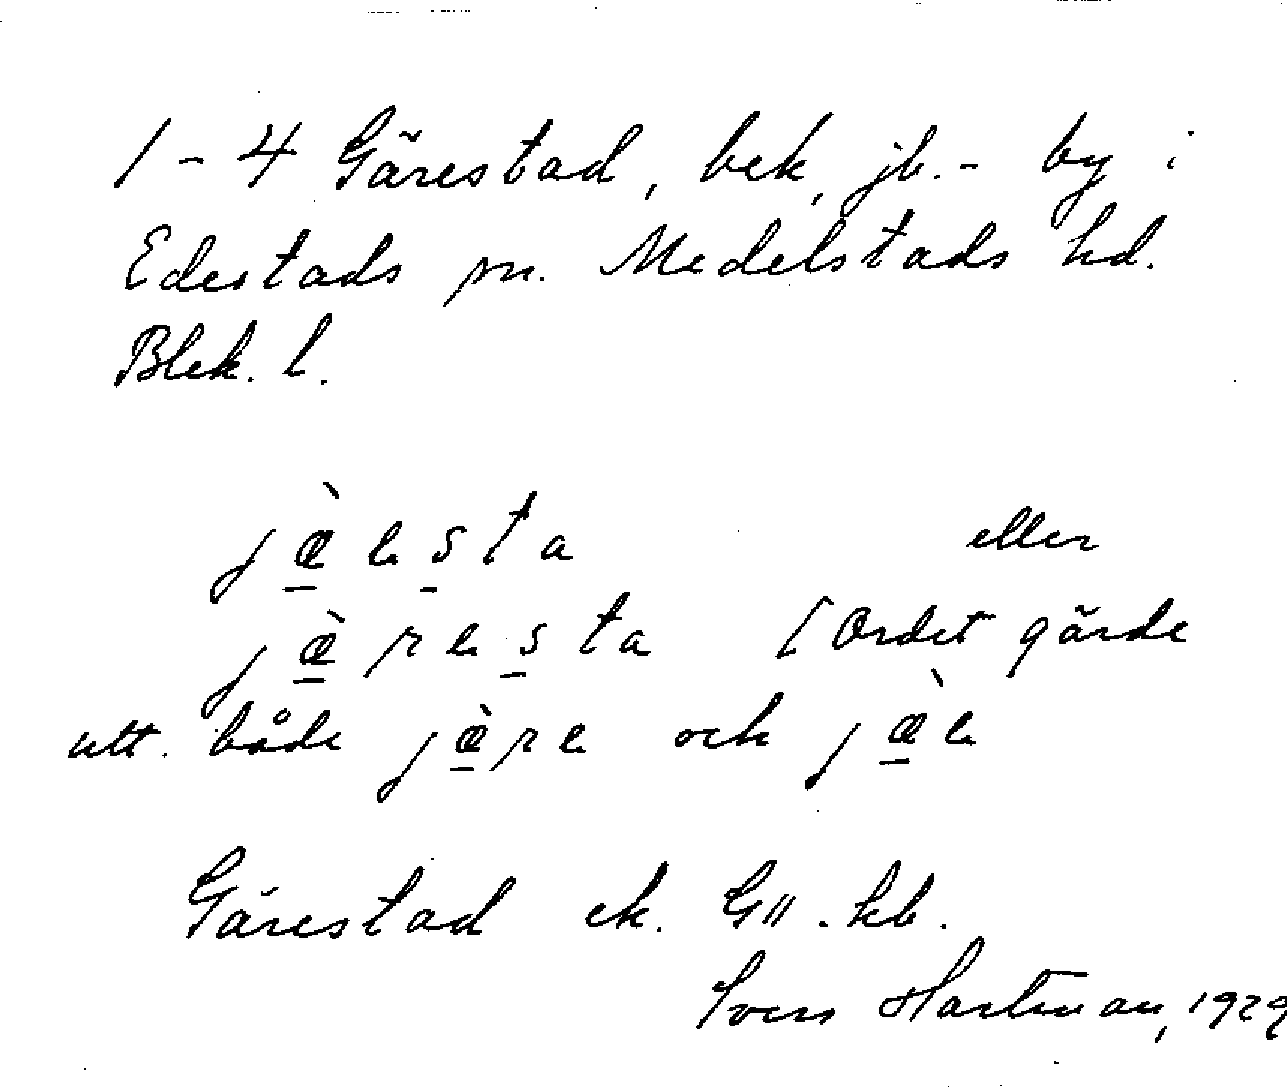 1-4 Gärestad, bek, jb.- by i
Edestads sn. Medelstads hd.
Blek. l.
jæ̀lesta eller
jæ̀resta [Ordet gärde
utt. både jæ̀re och jæ̀le
Gärestad ek. G11. kb.
Sven Hartman, 1929